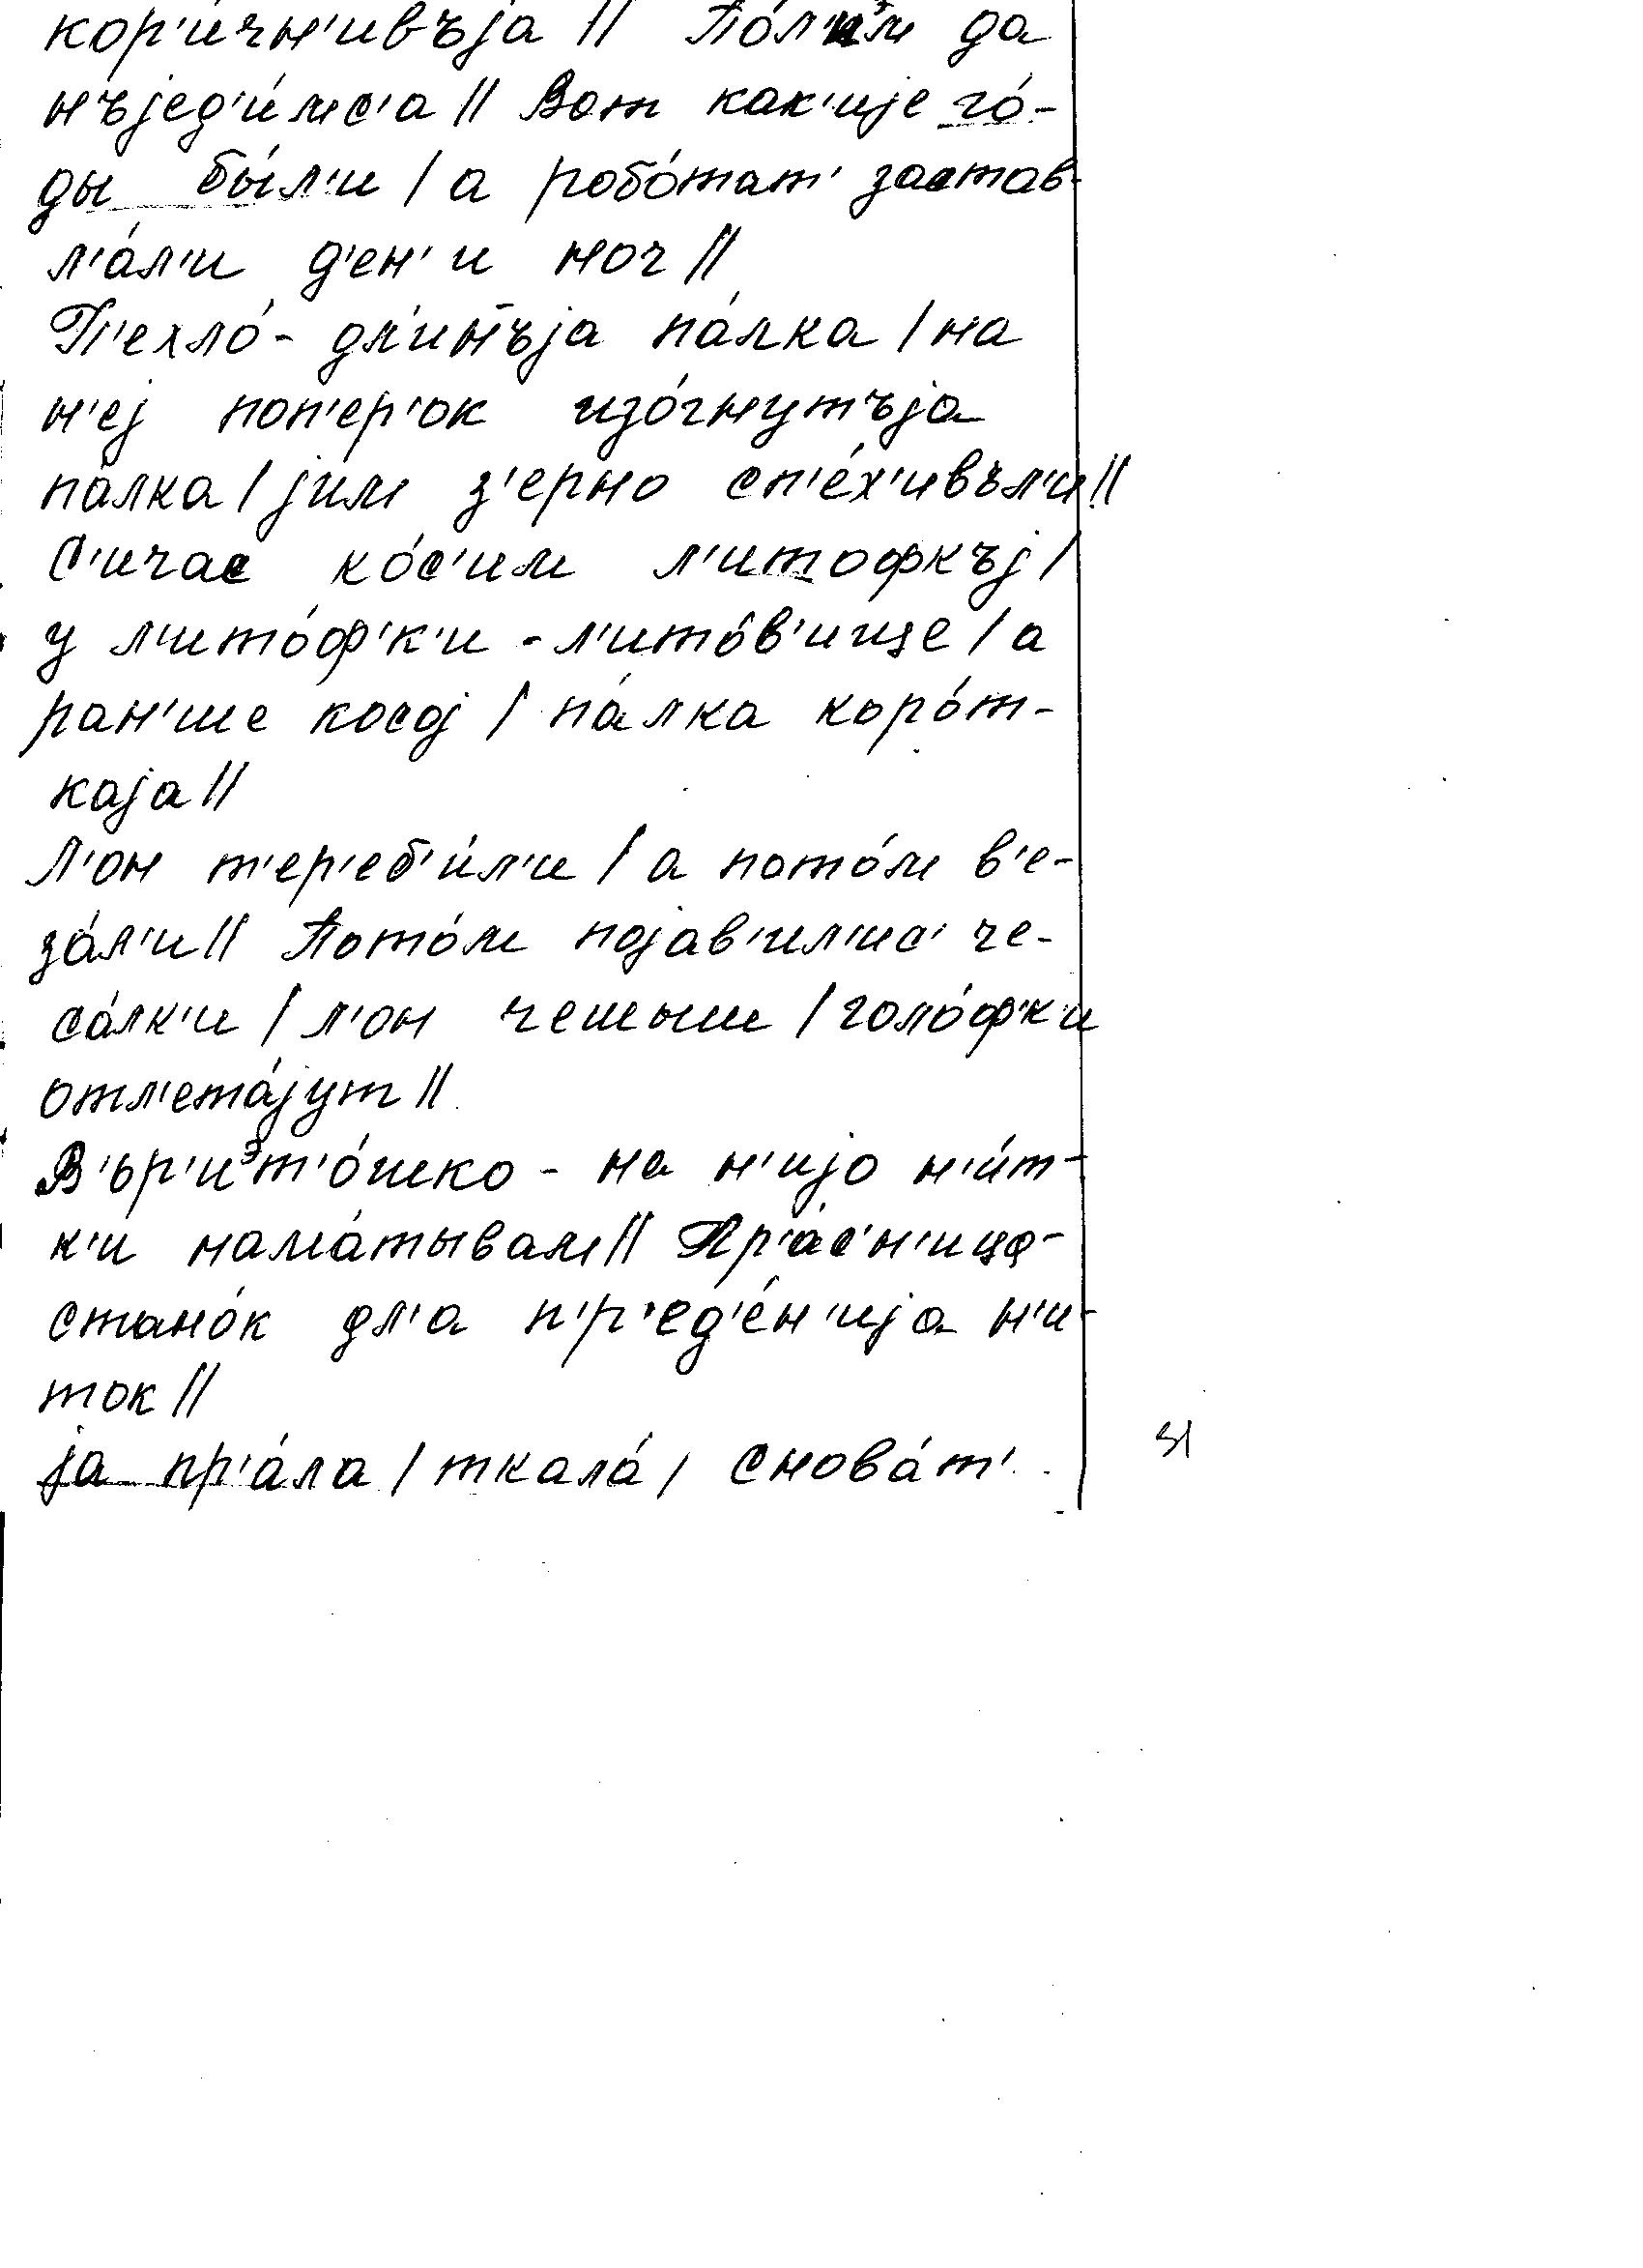 кор'и́чн'ивъjа || По́л'иᵊм да
нъjед'и́мс'а || Вот как'иjе го́-
ды бы́л'и | а робо́тат' застав-
л'а́л'и д'ен' и ноч ||
П'ехло́ - дл'ин̄ъjа па́лка | на
н'еj поп'ер'ок изо́гнутъjа
па́лка | jим з'ерно сп'е́х'ивъл'и ||
С'ичас ко́с'им л'итофкъj |
у л'ито́ф'к'и - л'ито́в'ище | а
ран'ше косоj | па́лка коро́т-
каjа ||
Л'он т'ер'еб'и́л'и | а пото́м в'е-
за́л'и || Пото́м поjав'ил'ис' че-
са́лк'и | л'он чешыш | голо́ф'к'и
отл'ета́jут ||
В'ьр'иᵊт'о́шко - на н'иjо н'и́т-
к'и нама́тывам || Пр'а́с'н'ица-
стано́к дл'а п'р'ед'е́н'иjа н'и-
ток ||
jа пр'а́ла | ткала́ | снова́т'
31